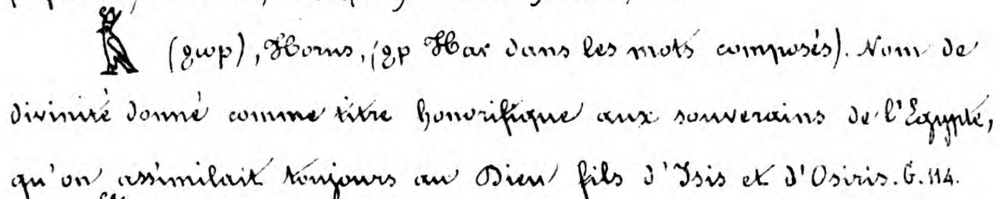 𓅃 (ϩωρ), Horus, (ϩρ Har dans les mots composés). Nom de
divinité donné comme titre honorifique aux souverains de l'Egypte,
qu'on assimilait toujours au Dieu fils d'Isis et d'Osiris. G. 114.